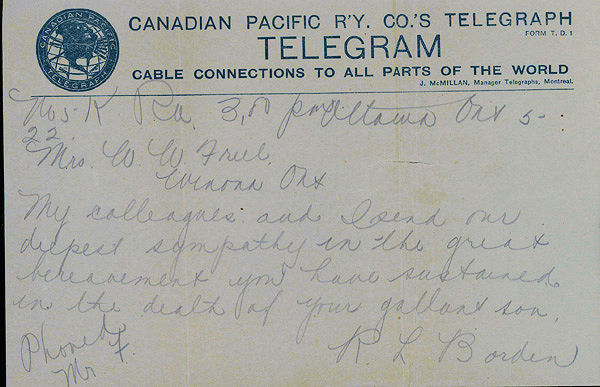 CANADIAN PACIFIC
TELEGRAPH
CANADIAN PACIFIC R'Y. CO.'S TELEGRAPH
FORM T. D. 1
TELEGRAM
CABLE CONNECTIONS TO ALL PARTS OF THE WORLD
J. McMILLAN, Manager Telegraphs, Montreal.
Ottawa Ont 5-
22
Mrs. W. W. Freel.
Winona Ont
My colleagues and I send our
deepest sympathy in the great
bereavement you have sustained
in the death of your gallant son.
R L Borden
Phoned
Mr F.